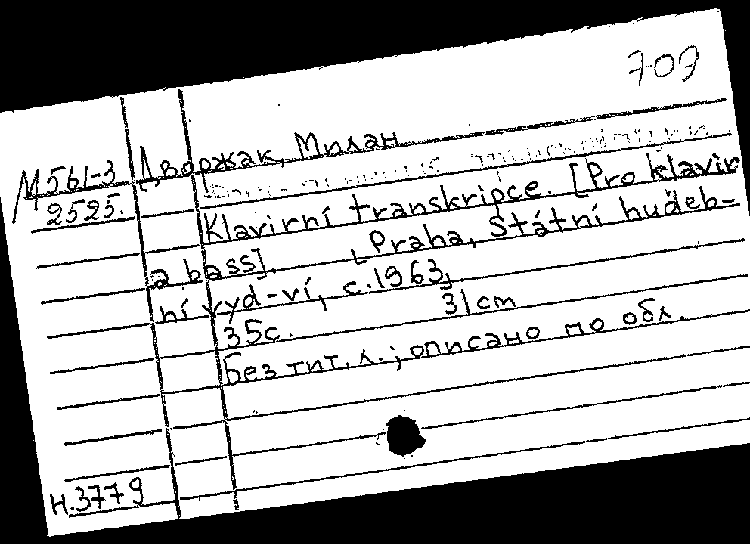 709
М561-3 Дворжак, Милан
2525.
Klavirní transkripce. [Pro klavir
a bass]. [Praha, Státní hudeb-
ní vyd-ví, c.1963]
35с. 31 cm
Без тит. л.; описано по обл.
Н.3779